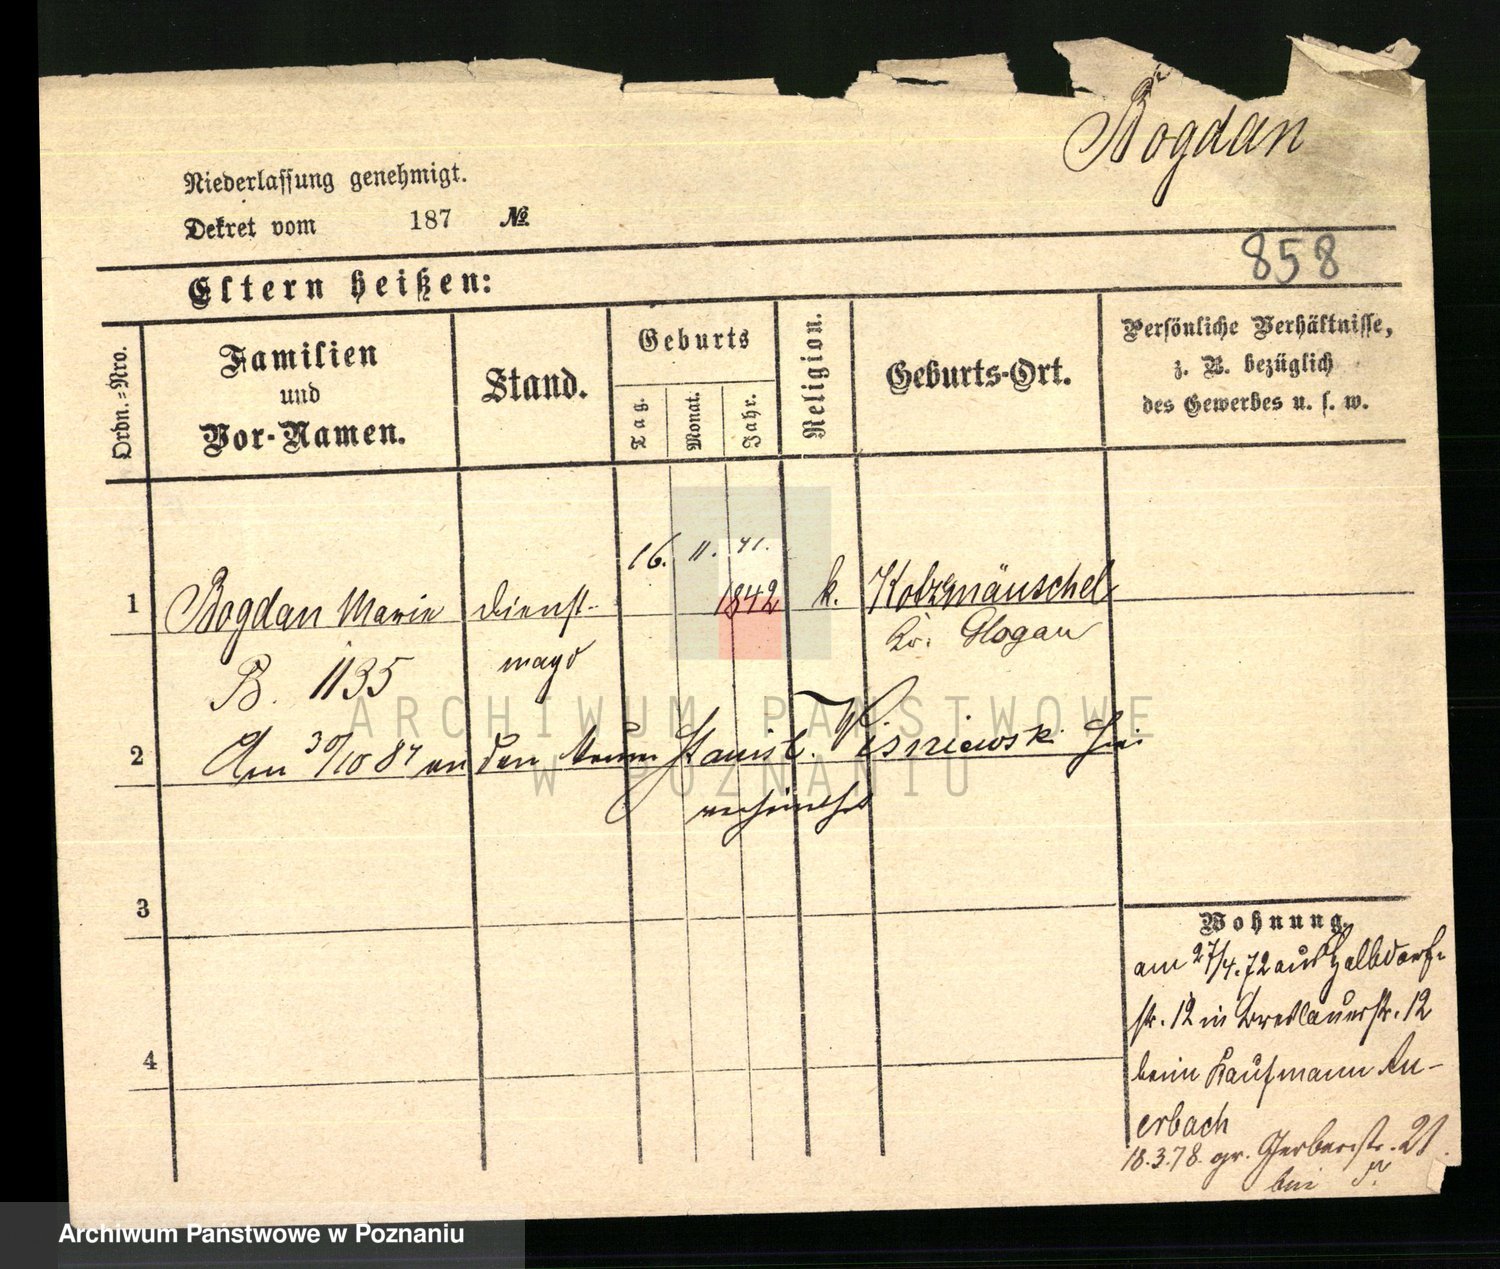 Bogdan
Niederlassung genehmigt.
Dekret vom 187 №
858
Eltern heißen:
Ordn.-Nro.
Familien
und
Vor-Namen.
Stand.
Geburts
Tag.
Monat.
Jahr.
Religion.
Geburts-Ort.
Persönliche Verhältnisse,
z. B. bezüglich
des Gewerbes u. s. w.
16. 11. 41.
1 Bogdan Marie Dienst- 1842 k. Kolzmäuschel
magd Kr. Glogau
B. 1135
2 Am 30/10 87 an den Stanisl. Wisniewski hier
verheirathet
3
4
Wohnung.
am 27/4. 72 aus Halbdorf-
str. 12 in Breslauerstr. 12
beim Kaufmann Au-
erbach
18.3.78. gr. Gerberstr. 21.
bei
ARCHIWUM PAŃSTWOWE
W POZNANIU
Archiwum Państwowe w Poznaniu